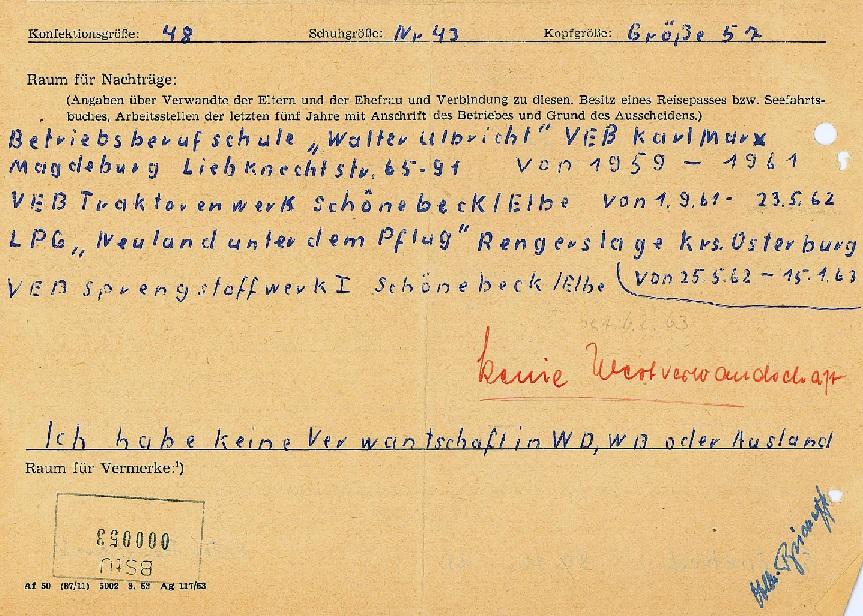 Konfektionsgröße: 48 Schuhgröße: Nr 43 Kopfgröße: Größe 57
Raum für Nachträge:
(Angaben über Verwandte der Eltern und der Ehefrau und Verbindung zu diesen. Besitz eines Reisepasses bzw. Seefahrts-
buches, Arbeitsstellen der letzten fünf Jahre mit Anschrift des Betriebes und Grund des Ausscheidens.)
Betriebsberufschule „Walter Ulbricht" VEB Karl Marx
Magdeburg Liebknechtstr. 65-91 von 1959 - 1961
VEB Traktorenwerk Schönebeck/Elbe von 1.9.61- 23.5.62
LPG „Neuland unter dem Pflug" Rengerslage Krs. Osterburg
VEB Sprengstoffwerk I Schönebeck/Elbe von 25.5.62 - 15.1.63
6.2.63
keine Westverwandschaft
Ich habe keine Verwantschaft in WD, WB oder Ausland
Raum für Vermerke:¹)
000053
BStU
Af 50 (87/11) 5002 8. 62 Ag 117/63